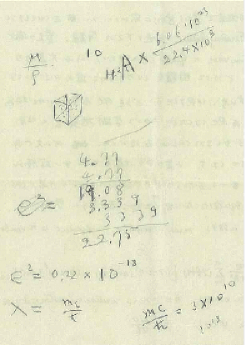 M/ρ 10 A × 6.06·10²³/22.4×10³
4.77
4.77
19.08
3339
3339
22.75
e² =
ε² = 0.22 × 10⁻¹⁸
X = mc/ħ
mc/ħ = 3×10¹⁰